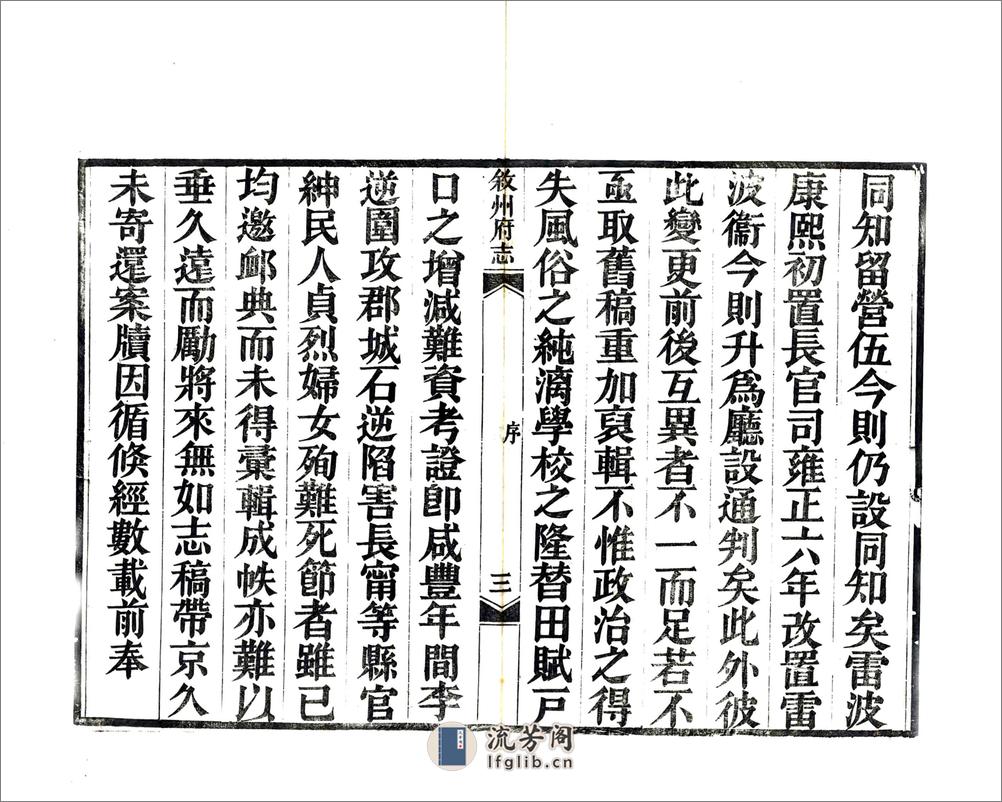 同知留營伍今則仍設同知矣雷波
康熙初置長官司雍正六年改置雷
波衞今則升爲廳設通判矣此外彼
此變更前後互異者不一而足若不
亟取舊稿重加裒輯不惟政治之得
失風俗之純漓學校之隆替田賦戸
敘州府志
序
三
口之增減難資考證卽咸豐年間李
逆圍攻郡城石逆陷害長甯等縣官
紳民人貞烈婦女殉難死節者雖已
均邀衈典而未得彙輯成帙亦難以
垂久遠而勵將來無如志稿帶京久
未寄還案牘因循倏經數載前奉
流芳阁
lfglib.cn